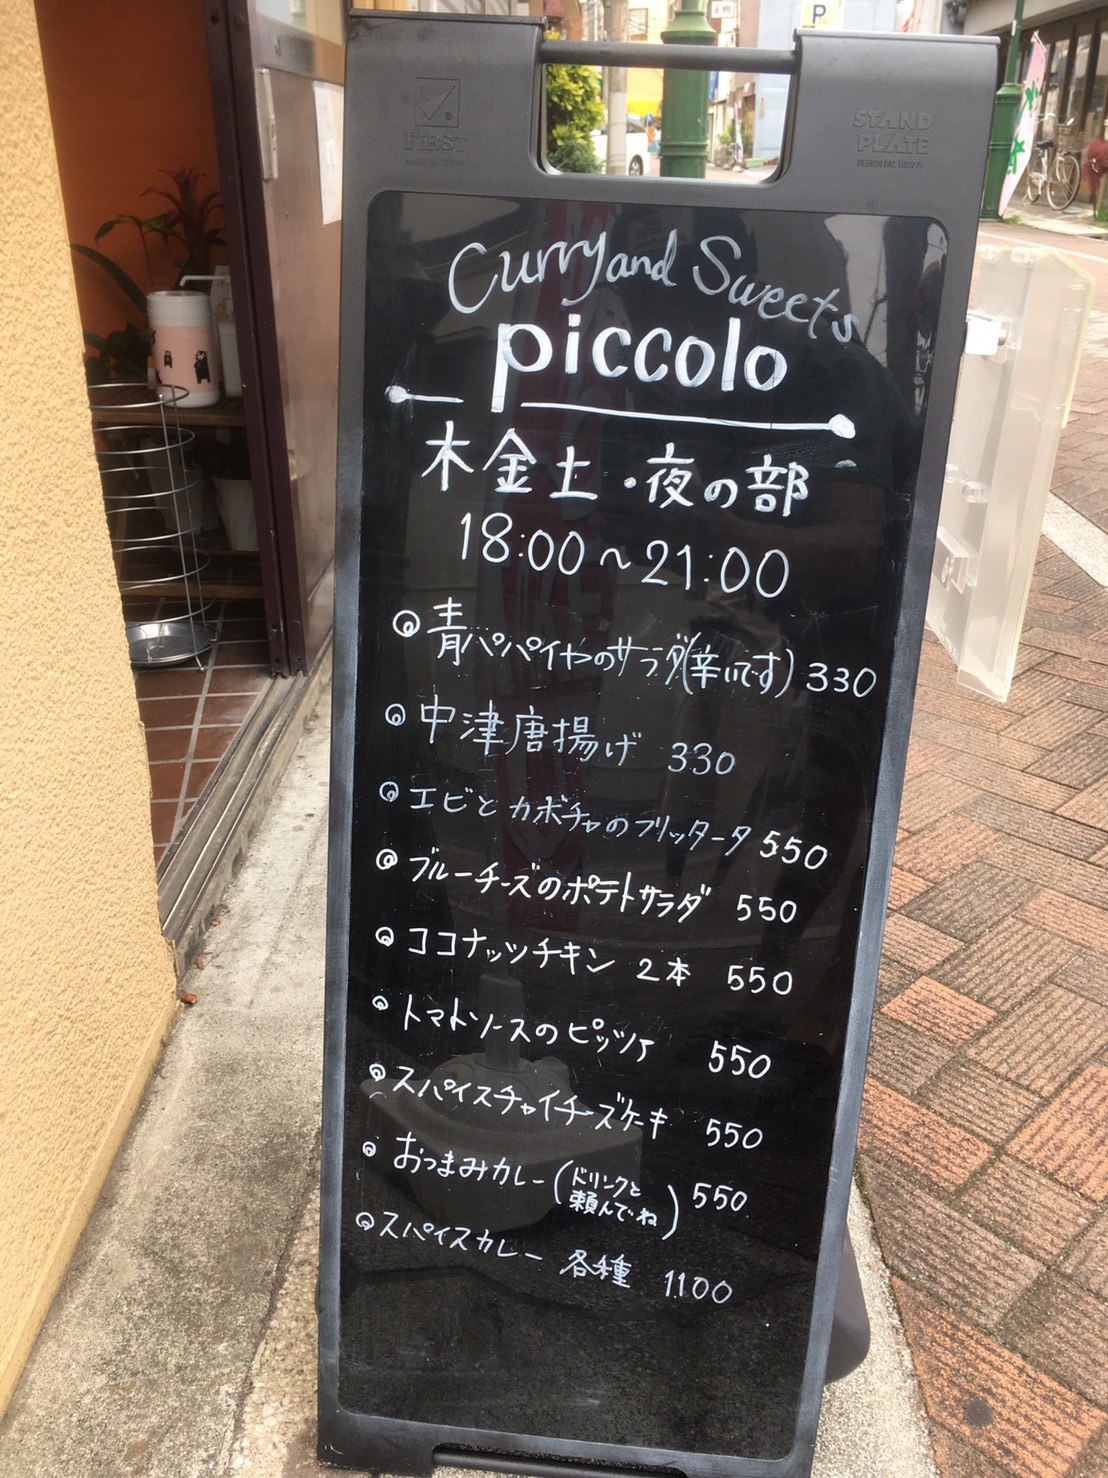 FIRST
MADE IN CHINA
STAND
PLATE
P
Curry and Sweets
piccolo
木金土・夜の部
18:00~21:00
青パパイヤのサラダ(辛いです) 330
中津唐揚げ 330
エビとカボチャのフリッタータ 550
ブルーチーズのポテトサラダ 550
ココナッツチキン 2本 550
トマトソースのピッツァ 550
スパイスチャイチーズケーキ 550
おつまみカレー(ドリンクと
頼んでね) 550
スパイスカレー 各種 1100